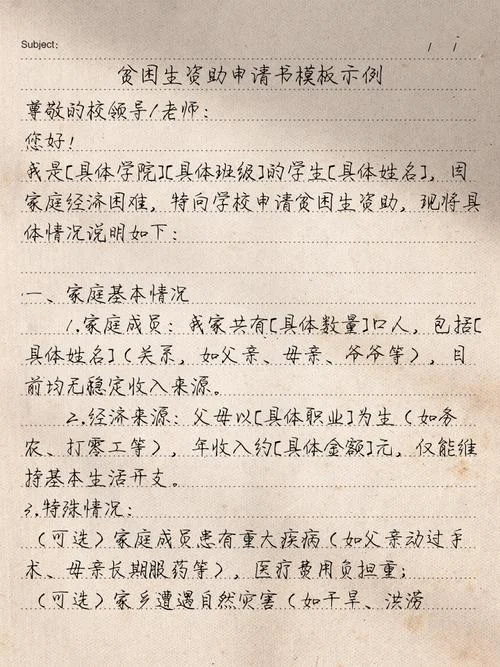 Subject:
/ /
贫困生资助申请书模板示例
尊敬的校领导/老师：
您好！
我是[具体学院][具体班级]的学生[具体姓名]，因
家庭经济困难，特向学校申请贫困生资助，现将具
体情况说明如下：
一、家庭基本情况
1.家庭成员：我家共有[具体数量]口人，包括[
具体姓名]（关系，如父亲、母亲、爷爷等），目
前均无稳定收入来源。
2.经济来源：父母以[具体职业]为生（如务
农、打零工等），年收入约[具体金额]元，仅能维
持基本生活开支。
3.特殊情况：
（可选）家庭成员患有重大疾病（如父亲动过手
术、母亲长期服药等），医疗费用负担重；
（可选）家乡遭遇自然灾害（如干旱、洪涝